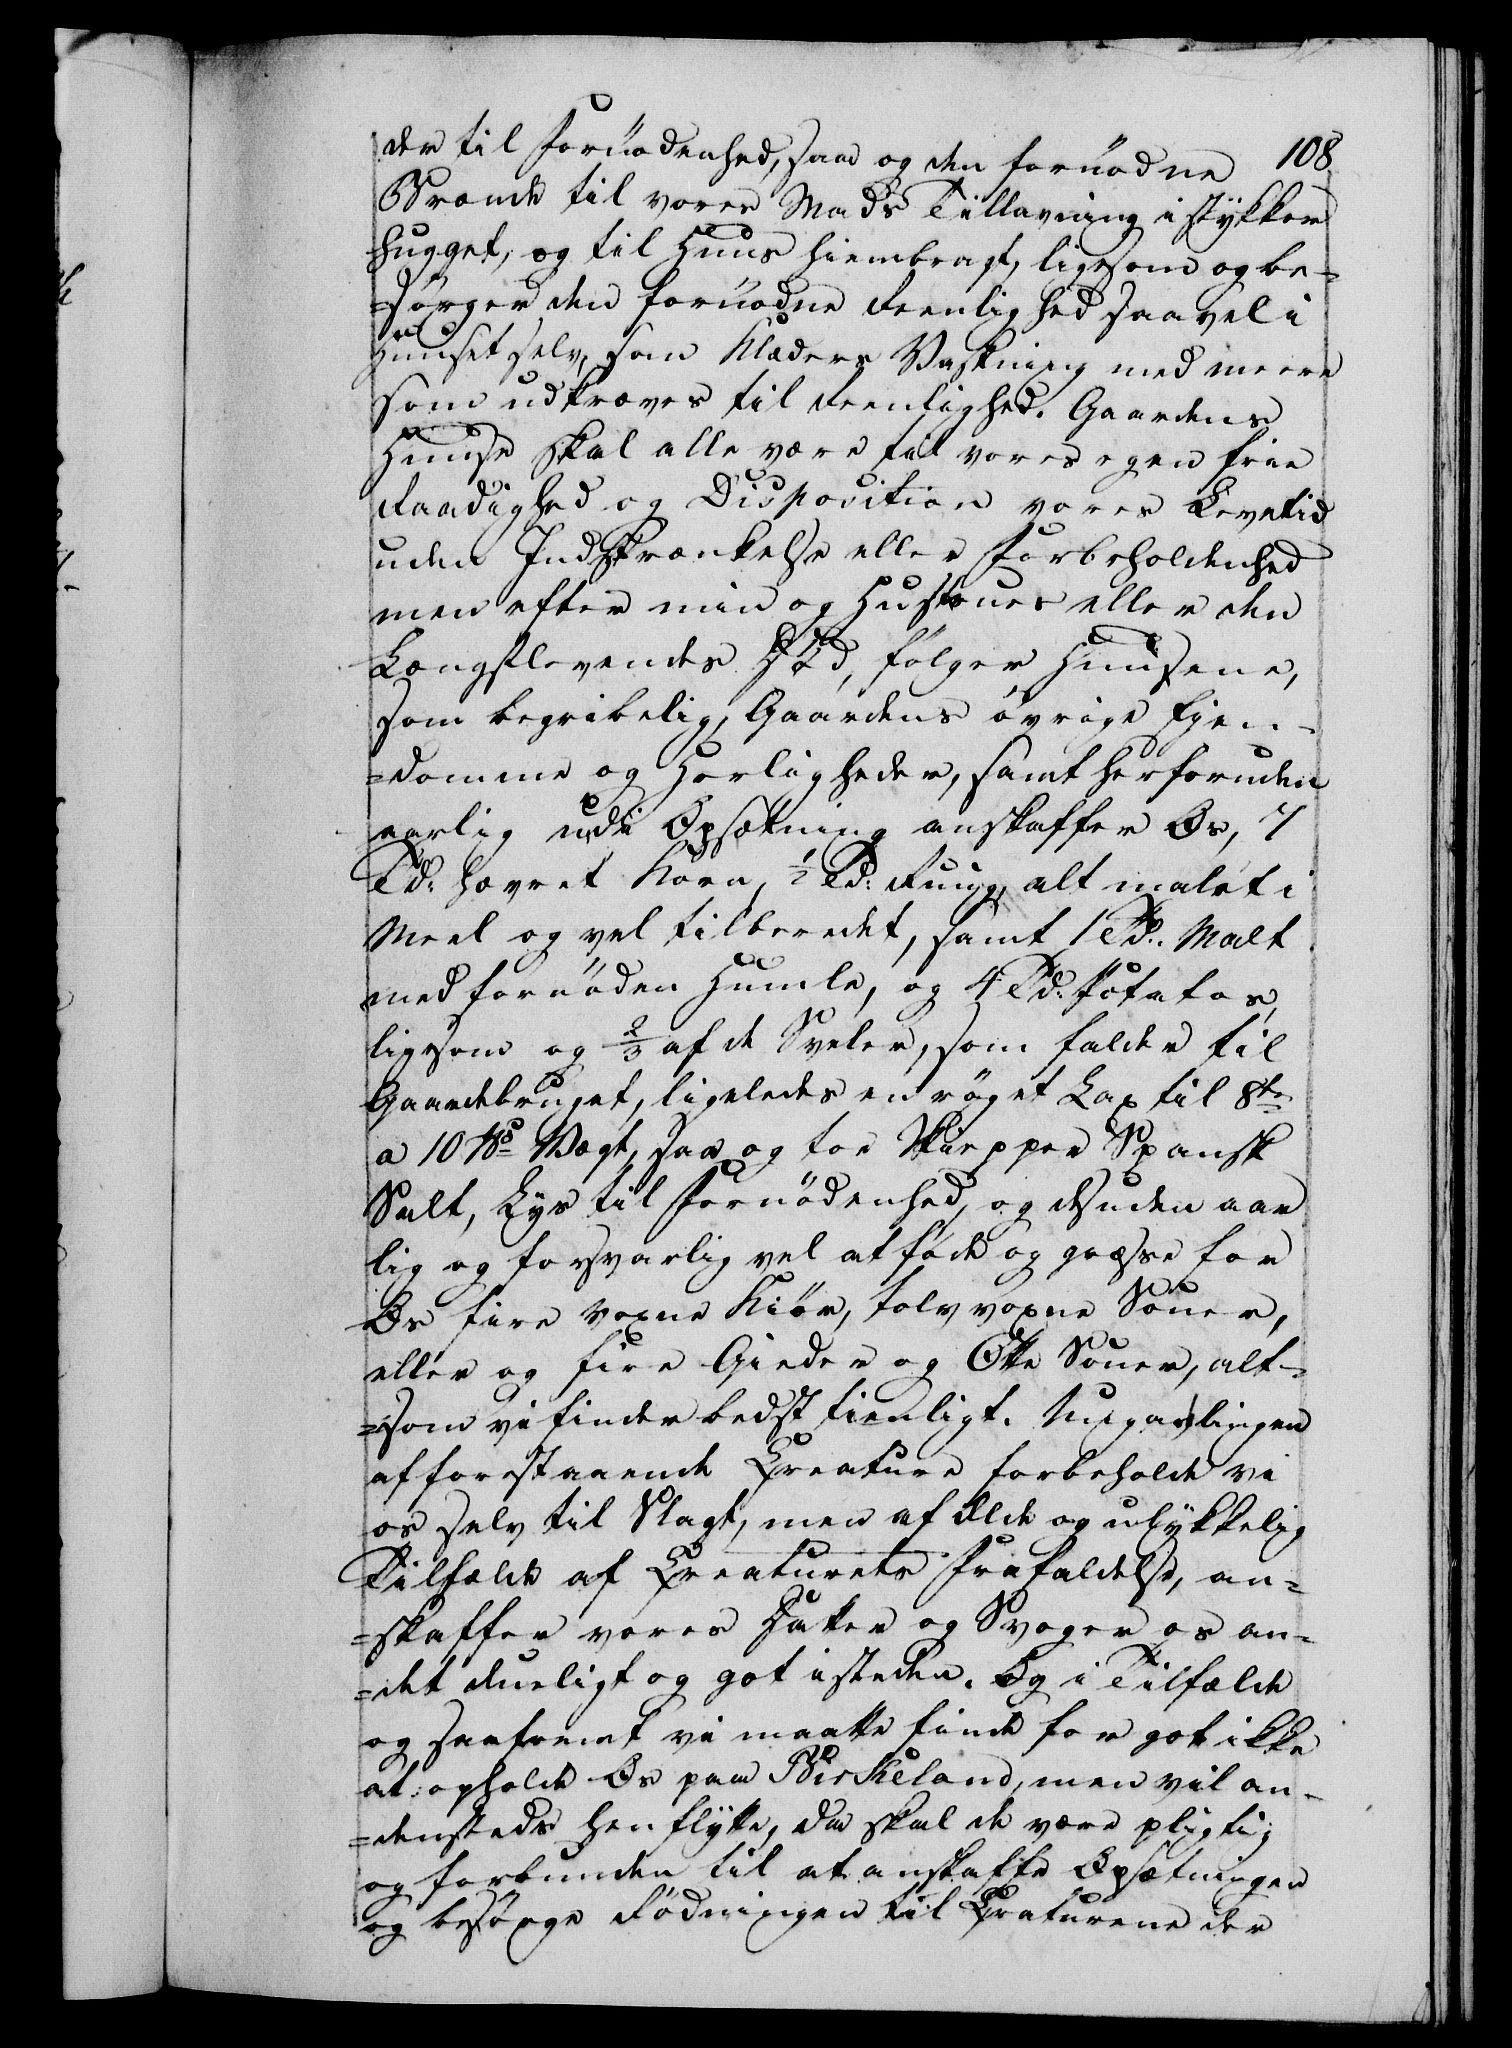 der til Fornødenhed, saa og den fornødne 108
Brænde til vores Mads Tillavning i stykker
hugget, og til Huus hiembragt, ligesom og be-
=sørger den fornødne Reenlighed saavel i
Huuset selv, som Klæders Vaskning med meere
som udkræves til Reenlighed. Gaardens
Huuse skal alle være til vores egen frie
Raadighed og Disposition vores Levetid
uden Indskrænkelse eller Forbeholdenhed
men efter min og Hustrues eller den
Længstlevendes Død, følger Huusene,
som begribelig, Gaardens øvrige Ejen-
=domme og Herligheder, samt herforuden
aarlig udi Opsætning anskaffer Os, 7
Td: havret Korn, ½ Td: Ruug, alt malet i
Meel og vel tilberedet, samt 1 Td: Malt
med fornøden Humle, og 4 Td: Potatos,
ligesom og 2/3 af de Sveler, som falder til
Gaardebruget, ligeledes en røget Lax til 8te
a 10 ℔ Vægt, saa og toe Skiepper Spansk
Salt, Lys til Fornødenhed, og desuden aar
lig og forsvarlig vel at føde og græsse for
Os fire voxne Kiør, tolv voxne Souer,
eller og fire Gieder og Otte Souer, alt-
=som vi finder bedst tienligt. Ungavlingen
af forestaaende Creature forbeholde vi
os selv til Slagt, men af Ælde og ulykkelig
Tilfælde af Creaturets Frafaldelse, an-
=skaffer vores Datter og Svoger os an-
=det dueligt og got isteden. Og i Tilfælde
og saafremt vi maatte finde for got ikke
at opholde Os paa Birkeland, men vil an-
=densteds henflytte, da skal de være pligtig
og forbunden til at anskaffe Opsætningen
og besørge Fødningen til Creaturene der